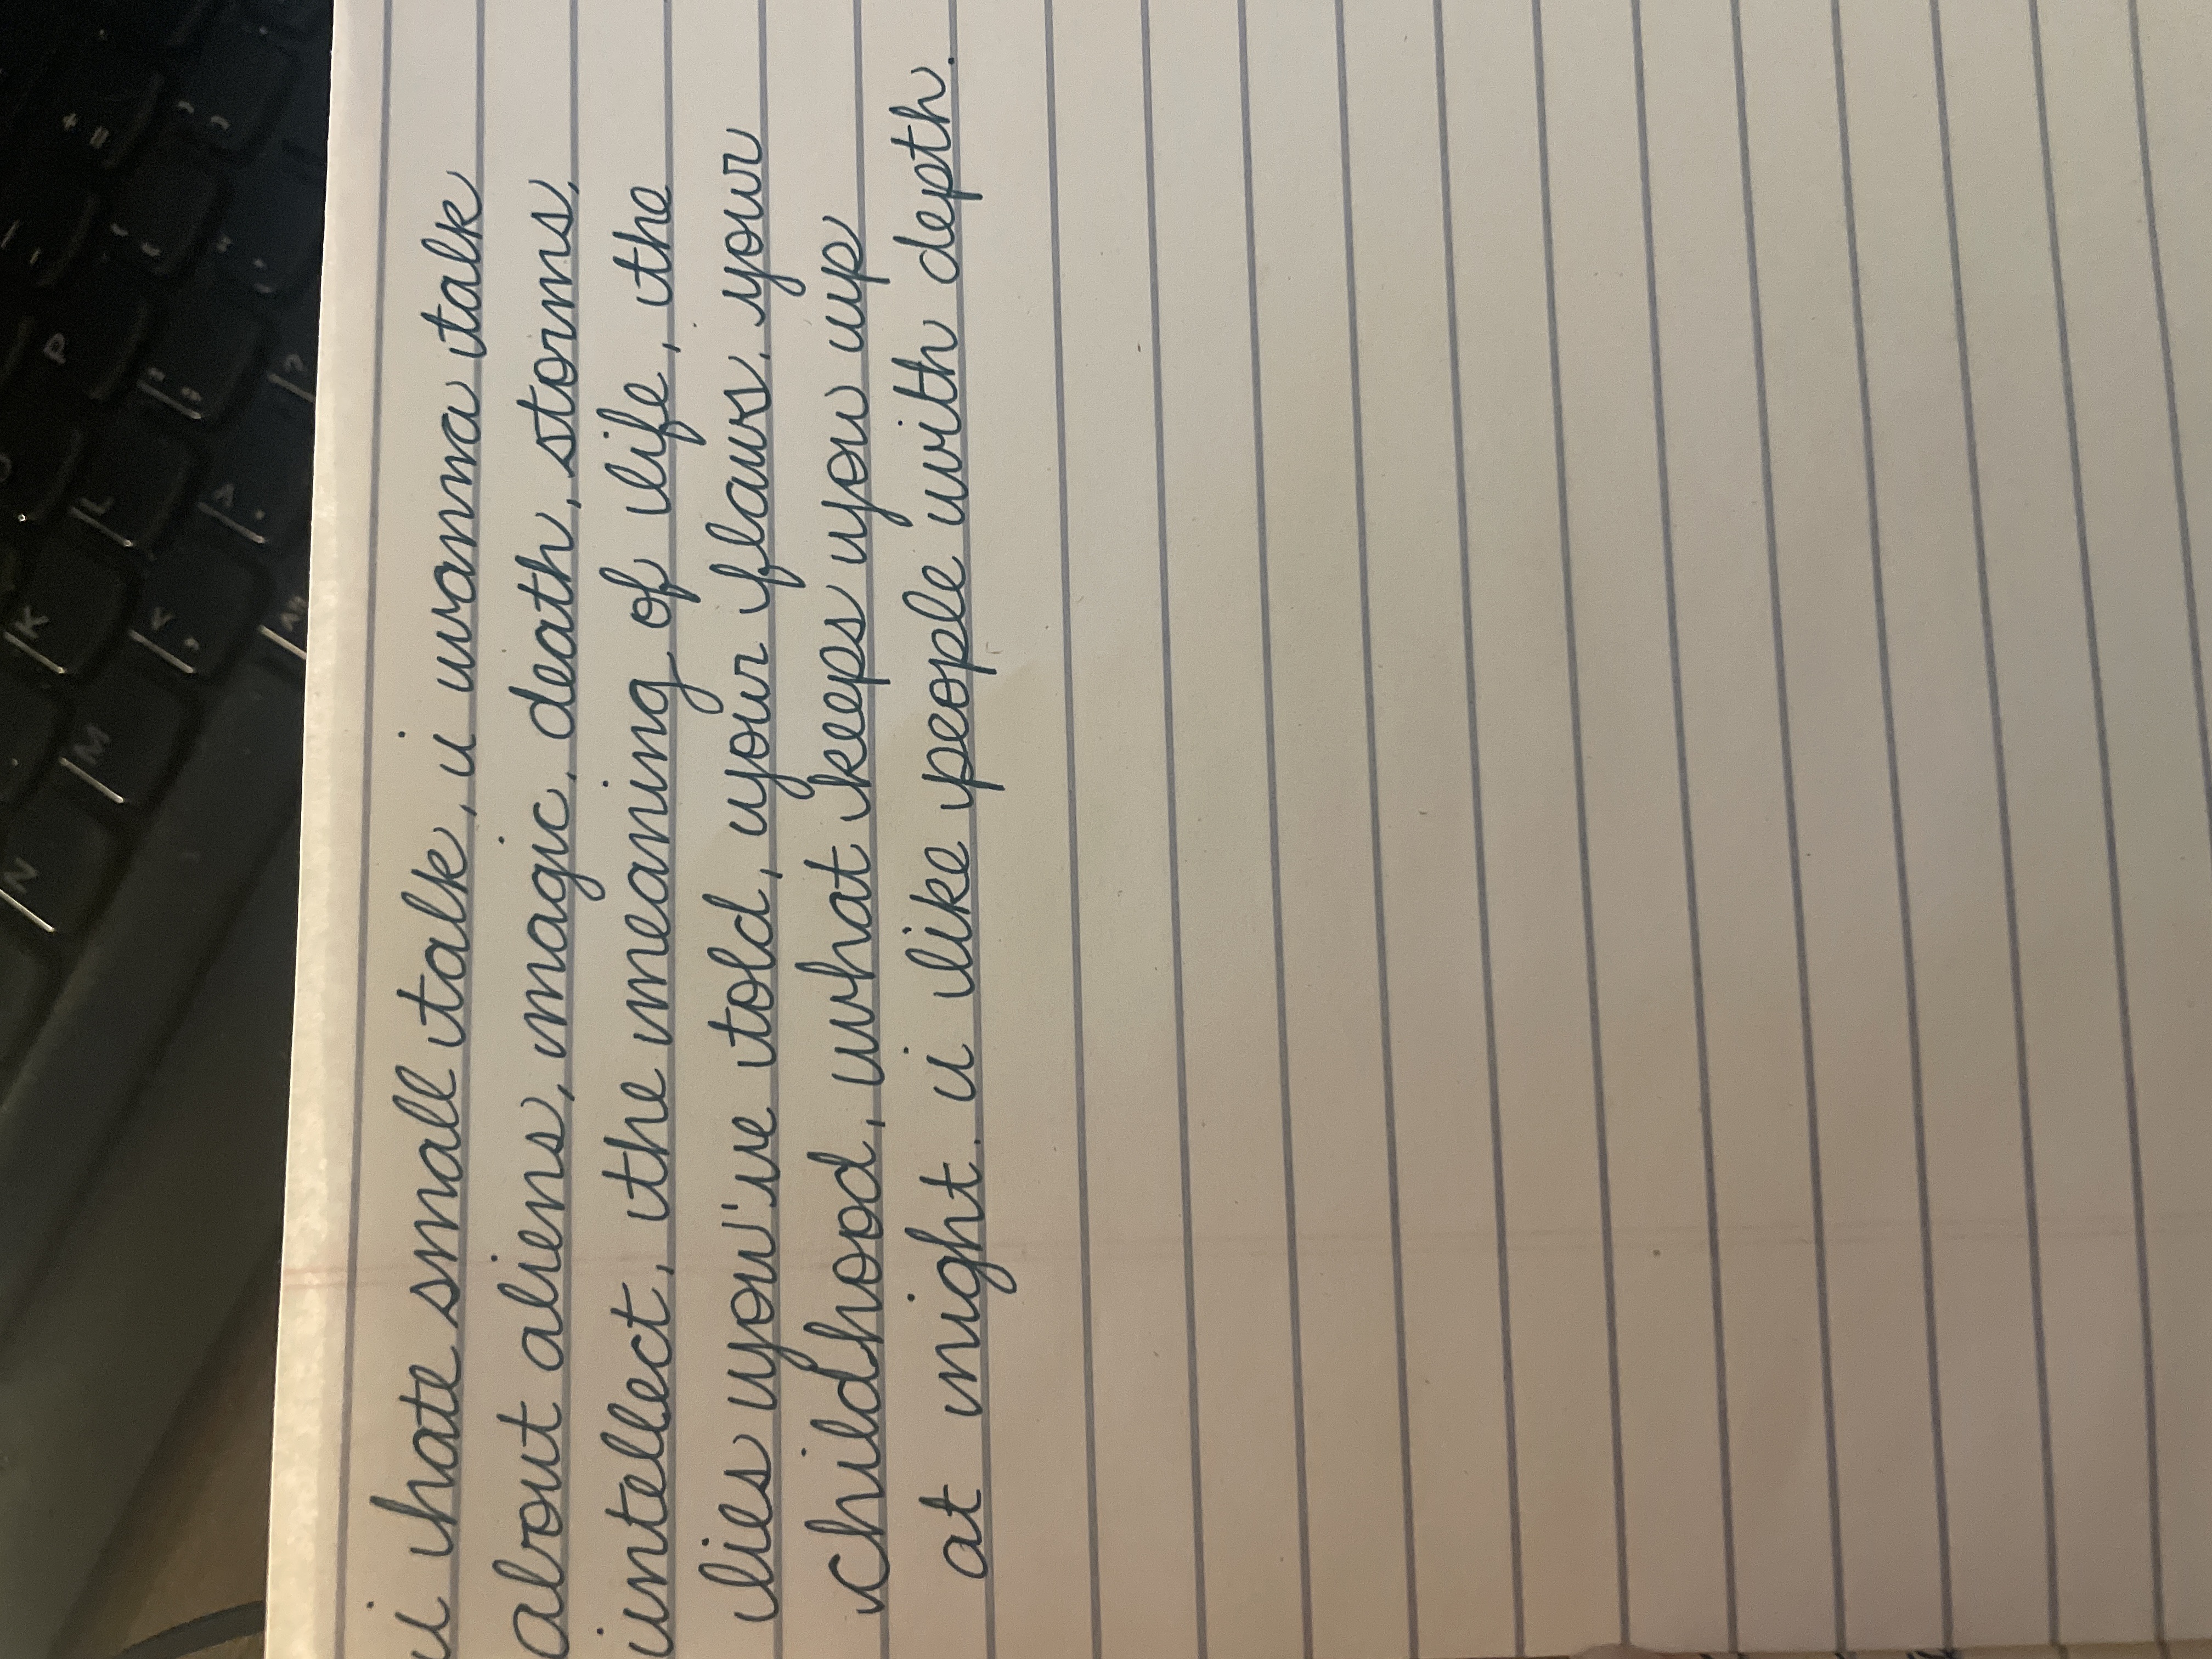 i hate small talk, i wanna talk
about aliens, magic, death, storms,
intellect, the meaning of life, the
lies you've told, your flaws, your
childhood, what keeps you up
at night. i like people with depth.
P
L
K
M
N